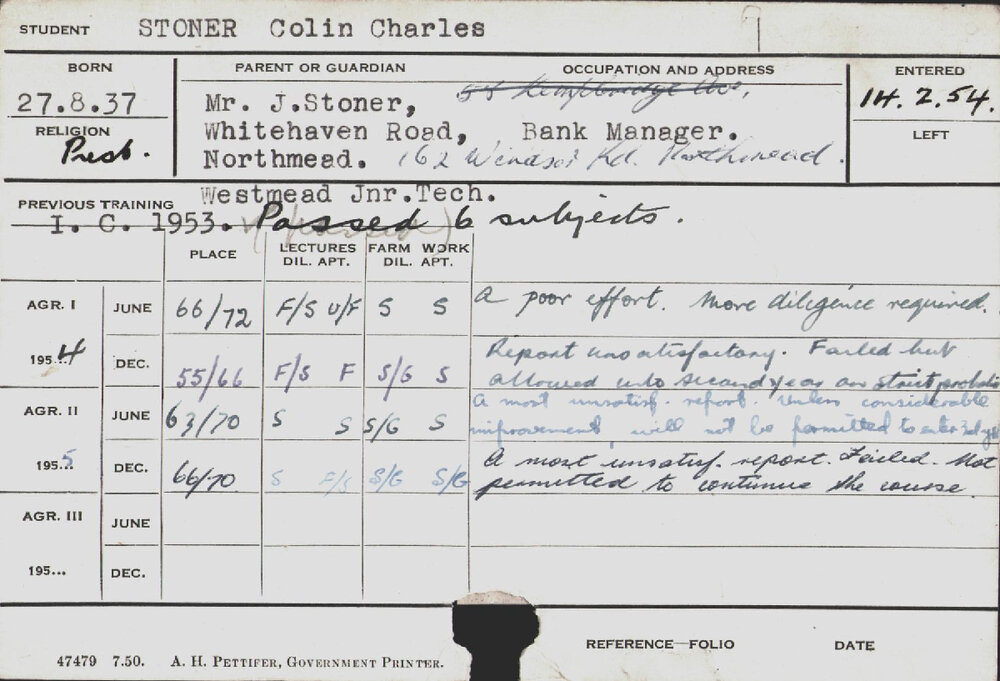 STUDENT STONER Colin Charles
BORN PARENT OR GUARDIAN OCCUPATION AND ADDRESS ENTERED
27.8.37 Mr. J.Stoner, 14.2.54.
RELIGION Whitehaven Road, Bank Manager. LEFT
Presb. Northmead. 162 Windsor Rd. Northmead.
Westmead Jnr.Tech.
PREVIOUS TRAINING
I. C. 1953. Passed 6 subjects.
PLACE LECTURES FARM WORK
DIL. APT. DIL. APT.
AGR. I JUNE 66/72 F/S U/F S S A poor effort. More diligence required.
1954 DEC. 55/66 F/S F S/G S Report unsatisfactory. Failed but
allowed into second year on strict probatn
AGR. II JUNE 63/70 S S S/G S A most unsatisf. report. Unless considerable
improvement, will not be permitted to enter 3rd yr
1955 DEC. 66/70 S F/S S/G S/G A most unsatisf. report. Failed. Not
permitted to continue the course.
AGR. III JUNE
195... DEC.
REFERENCE—FOLIO DATE
47479 7.50. A. H. PETTIFER, GOVERNMENT PRINTER.